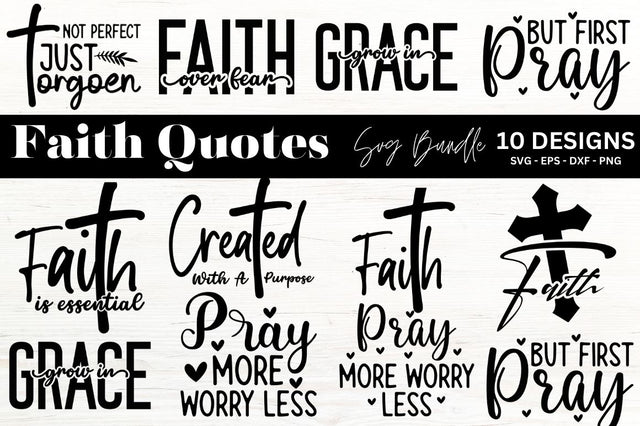 NOT PERFECT
JUST
forgoen
FAITH
over fear
GRACE
grow in
BUT FIRST
Pray
Faith Quotes
Svg Bundle
10 DESIGNS
SVG - EPS - DXF - PNG
Faith
is essential
Created
With A Purpose
Faith
Faith
GRACE
grow in
Pray
MORE
WORRY LESS
Pray
MORE WORRY
LESS
BUT FIRST
Pray